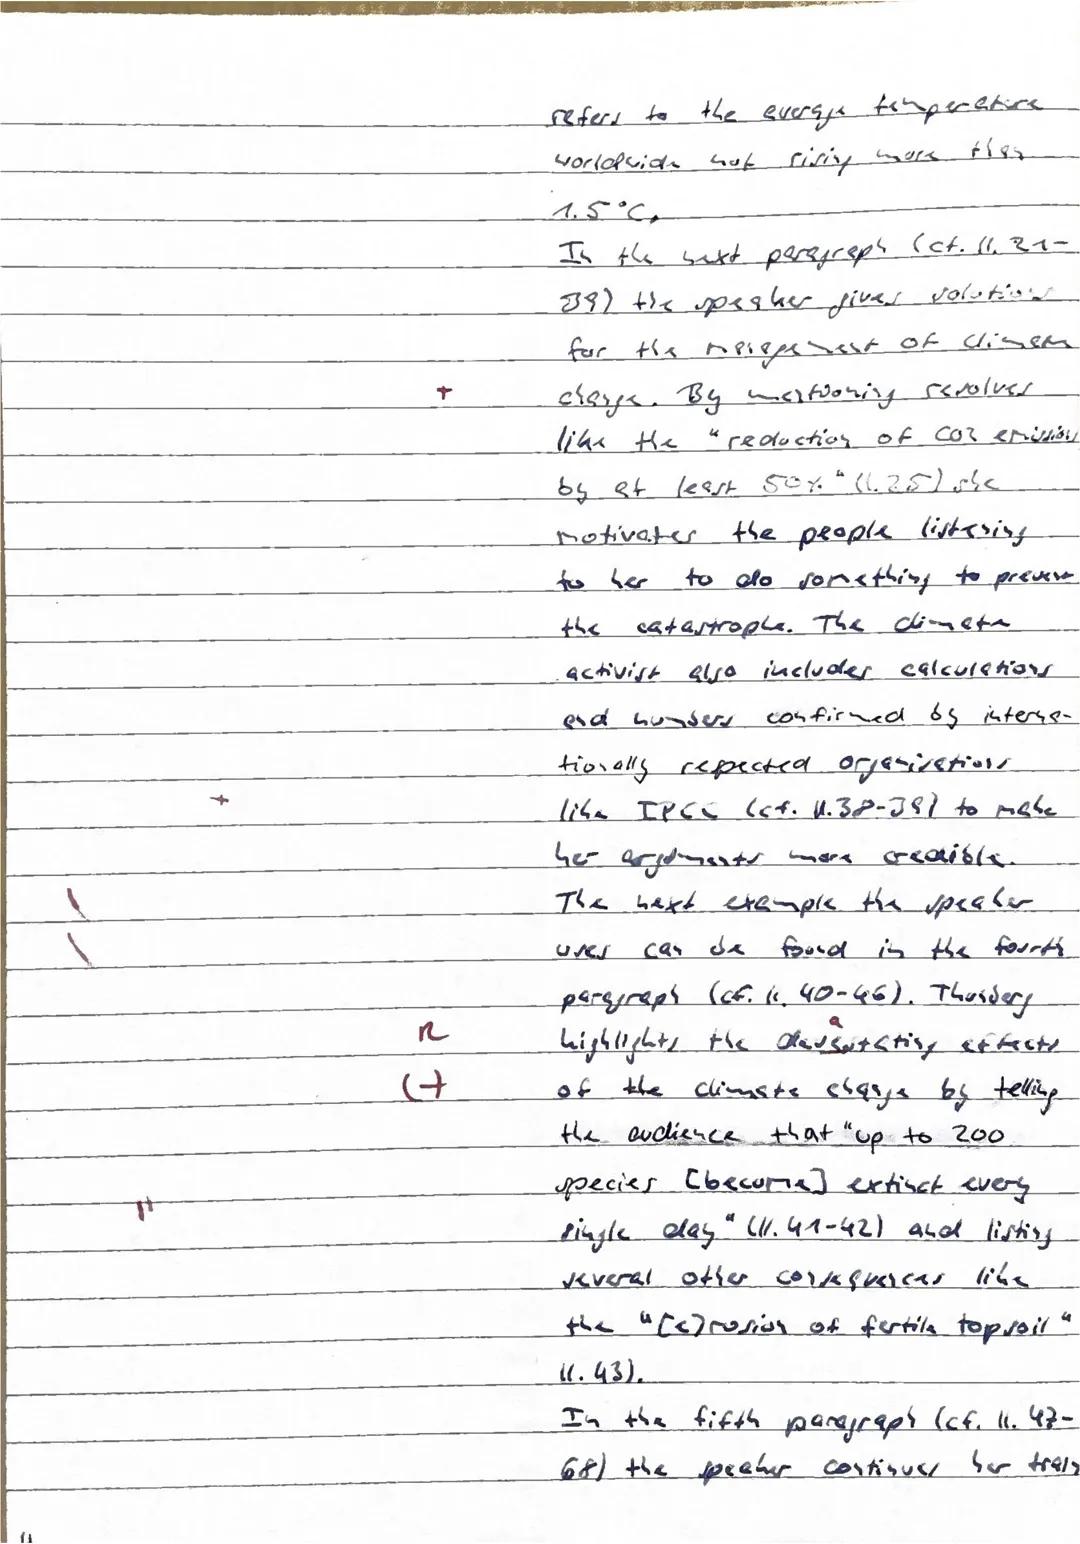 refers to the average temperature
worldwide not rising more than
1.5°C.
In the next paragraph (cf. ll. 21-
39) the speaker gives solutions
for the management of climate
+ change. By mentioning resolves
like the "reduction of CO2 emissions
by at least 50%" (l. 25) she
motivates the people listening
to her to do something to prevent
the catastrophe. The climate
activist also includes calculations
and numbers confirmed by interna-
tionally repected organisations
+ like IPCC (cf. ll. 38-39) to make
her arguments more credible.
The next example the speaker
uses can be found in the fourth
paragraph (cf. ll. 40-46). Thunberg
R highlights the devastating effects
(+ of the climate change by telling
the audience that "up to 200
species [become] extinct every
single day" (ll. 41-42) and listing
several other consequences like
the "[e]rosion of fertile topsoil"
ll. 43).
In the fifth paragraph (cf. ll. 47-
68) the speaker continues her